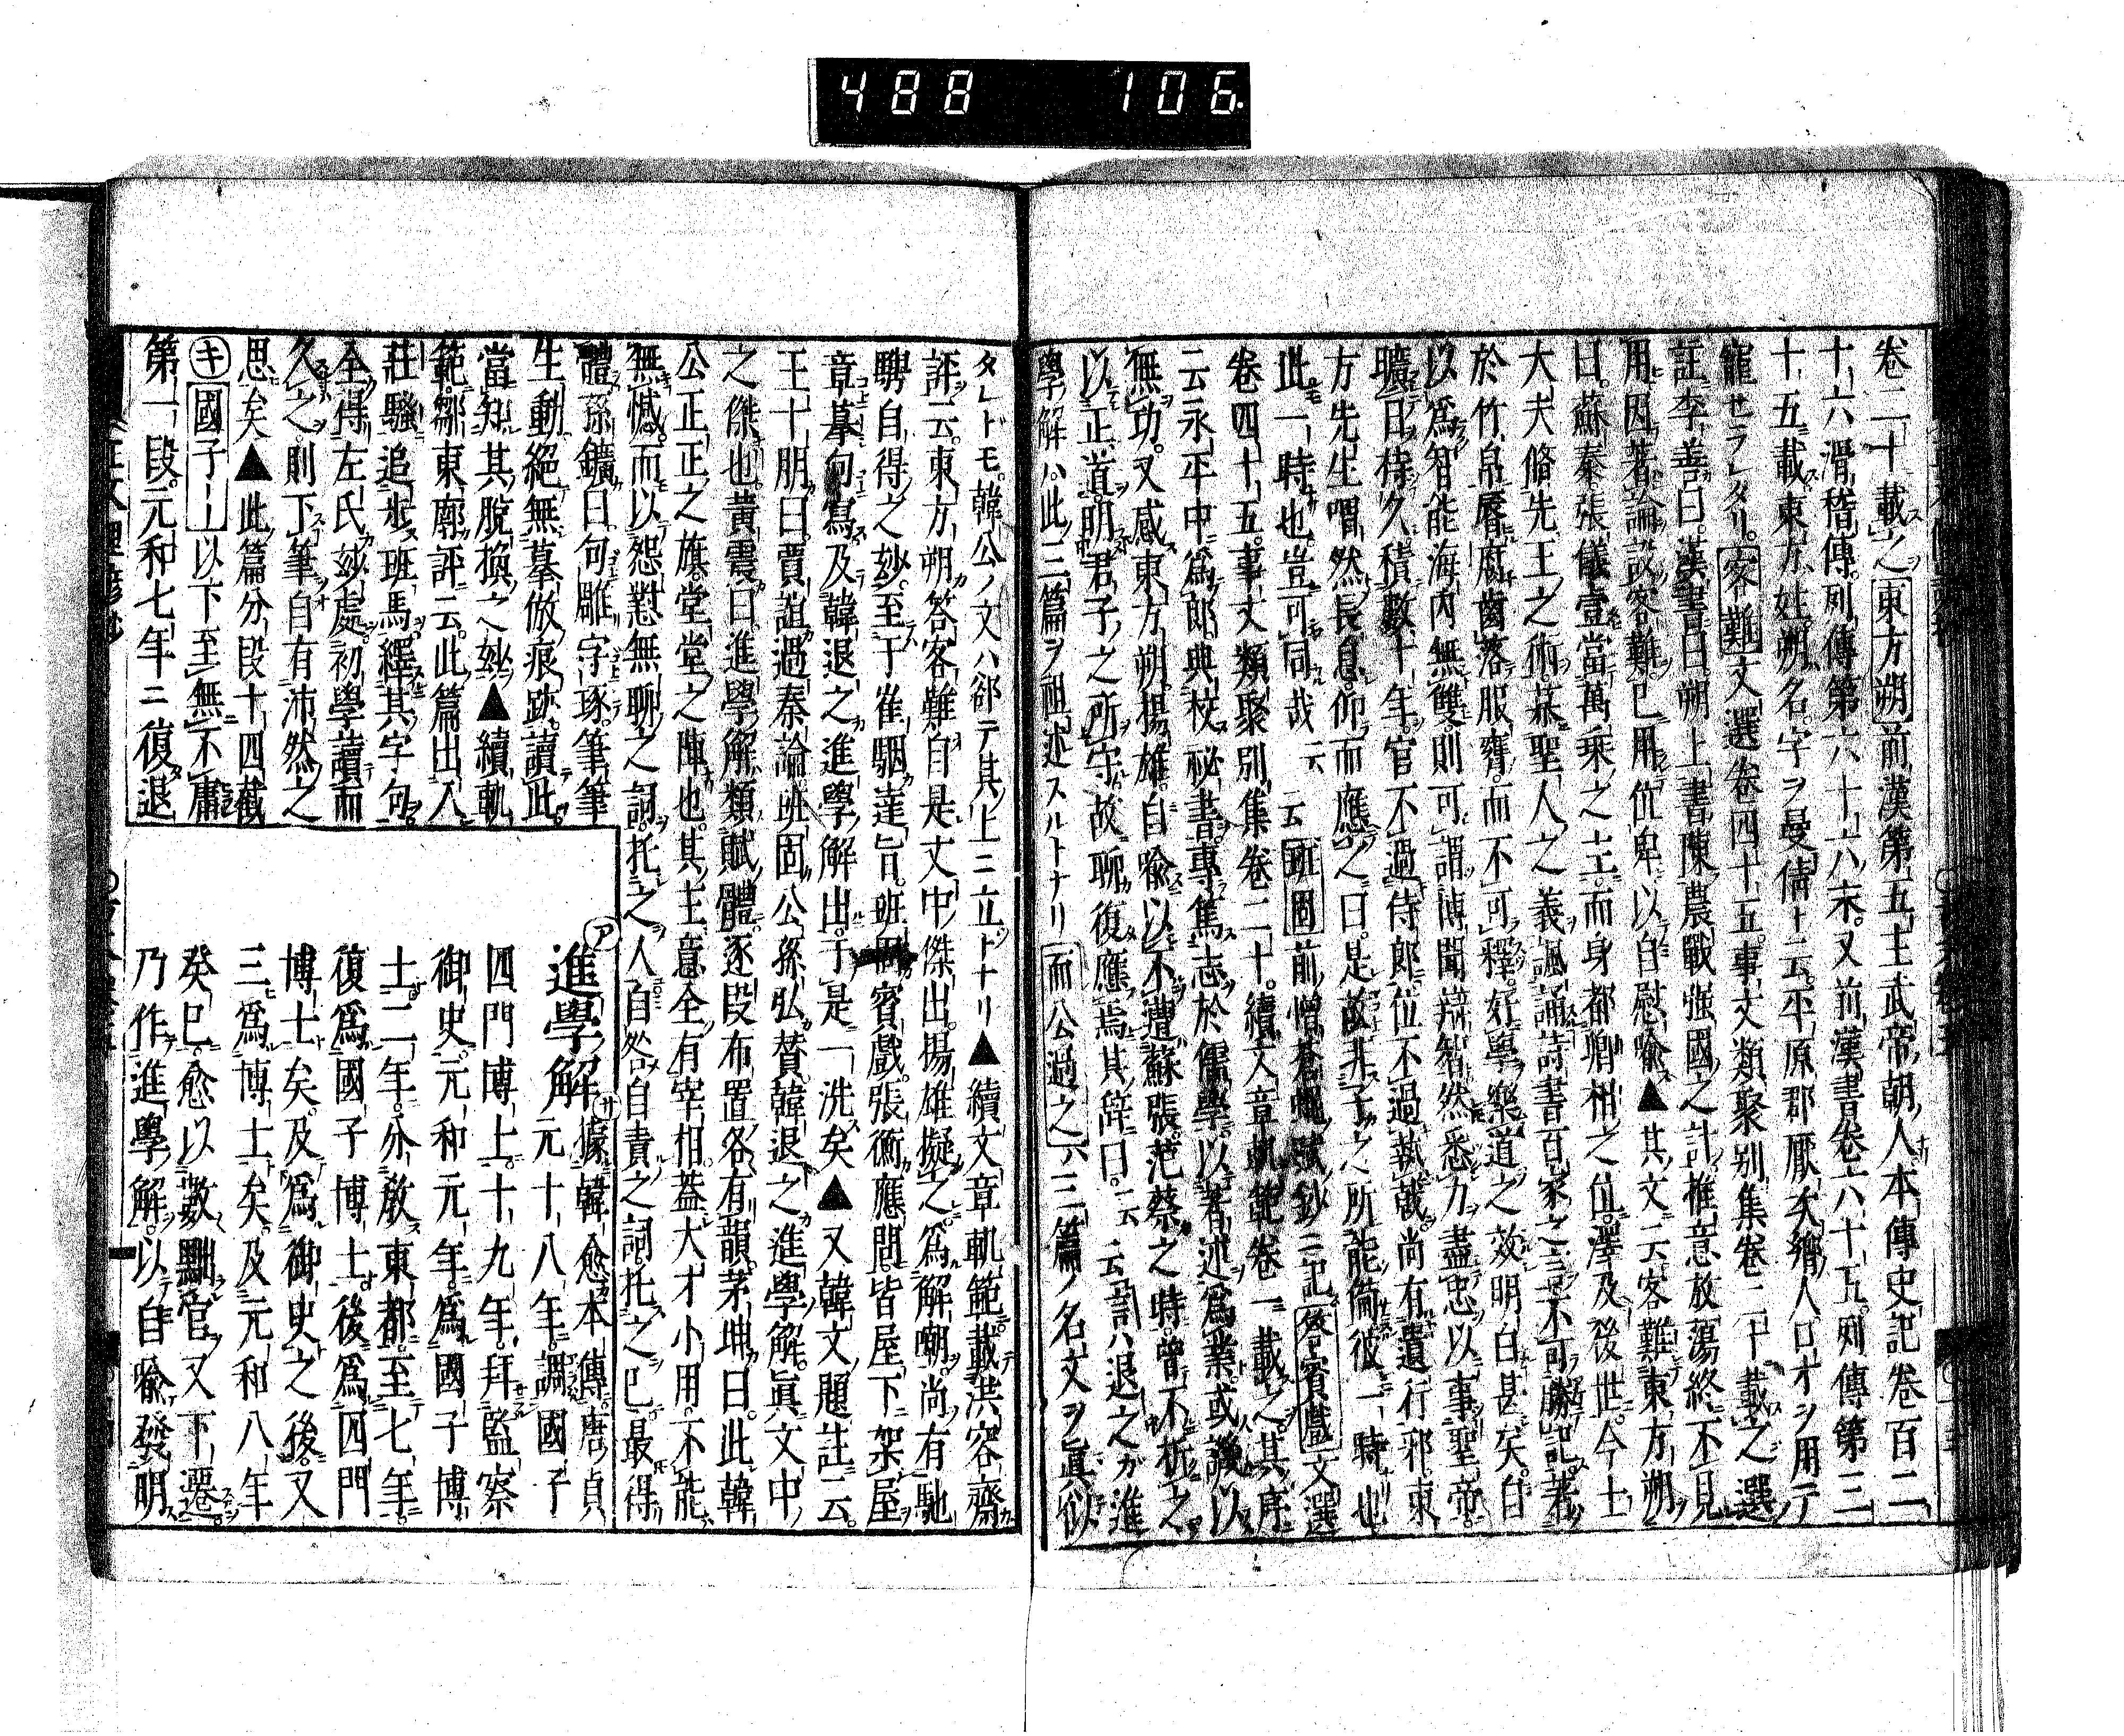 488 106
卷二十載之東方朔前漢第五主武帝朝人本傳史記卷百二
十六滑稽傳列傳第六十六末又前漢書卷六十五列傳第三
十五載東方姓朔名字ヲ曼倩ト云平原郡厭次縣人口オヲ用テ
寵セラレタリ客難文選卷四十五事文類聚別集卷二十載之選
註李善曰漢書曰朔上書陳農戰強國之計推意放蕩終不見
用因著論設客難已用位卑以自慰喩▲其文云客難東方朔
曰蘇秦張儀壹當萬乘之主而身都卿相之位澤及後世今士
大夫脩先王之術慕聖人之義諷誦詩書百家之言不可勝記著
於竹帛唇腐齒落服膺而不可釋好學樂道之效明白甚矣自
以爲智能海內無雙則可謂博聞辯智然悉力盡忠以事聖帝
曠日持久積數十年官不過侍郎位不過執戟尚有遺行邪東
方先生喟然長息仰而應之曰是故非子之所能備彼一時也
此一時也豈可同哉云云班固前憎蒼蠅賦鈔ニ記答賓戲文選
卷四十五事文類聚別集卷二十續文章軌範卷一載之其序
云永平中爲郎典校祕書專篤志於儒學以著述爲業或譏以
無功又感東方朔揚雄自喩以不遭蘇張范蔡之時曾不折之
以正道明君子之所守故聊復應焉其辭曰云云言ハ退之ガ進
學解ハ此三篇ヲ祖述スルトナリ而公過之六三篇ノ名文ヲ眞似
タレドモ韓公ノ文ハ郤テ其上ニ立トナリ▲續文章軌範載洪容齋
評云東方朔答客難自是文中傑出揚雄擬之爲解嘲尚有馳
騁自得之妙至于崔駰達旨班固賓戲張衡應間皆屋下架屋
章摹句寫及韓退之進學解出于是一洗矣▲又韓文題註云
王十朋曰賈誼過秦論班固公孫弘贊韓退之進學解眞文中
之傑也黃震曰進學解類賦體逐段布置各有韻茅坤曰此韓
公正正之旗堂堂之陣也其主意全有宰相蓋大才小用不能
無憾而以怨懟無聊之詞托之人自咎自責之詞托之已最得
體孫鑛曰句雕字琢筆筆
生動絕無摹倣痕跡讀此
當知其脫換之妙▲續軌
範鄒東廓評云此篇出入
莊騷追步班馬繹其字句
全得左氏妙處初學讀而
久之則下筆自有沛然之
思矣▲此篇分段十四截
㋖國子ーー以下至無不庸
第一段元和七年ニ復退
㋐進學解㋚據韓愈本傳唐貞
元十八年調國子
四門博士十九年拜監察
御史元和元年爲國子博
士二年分敎東都至七年
復爲國子博士後爲四門
博士矣及爲御史之後又
三爲博士矣及元和八年
癸巳愈以數黜官又下遷
乃作進學解以自喩發明